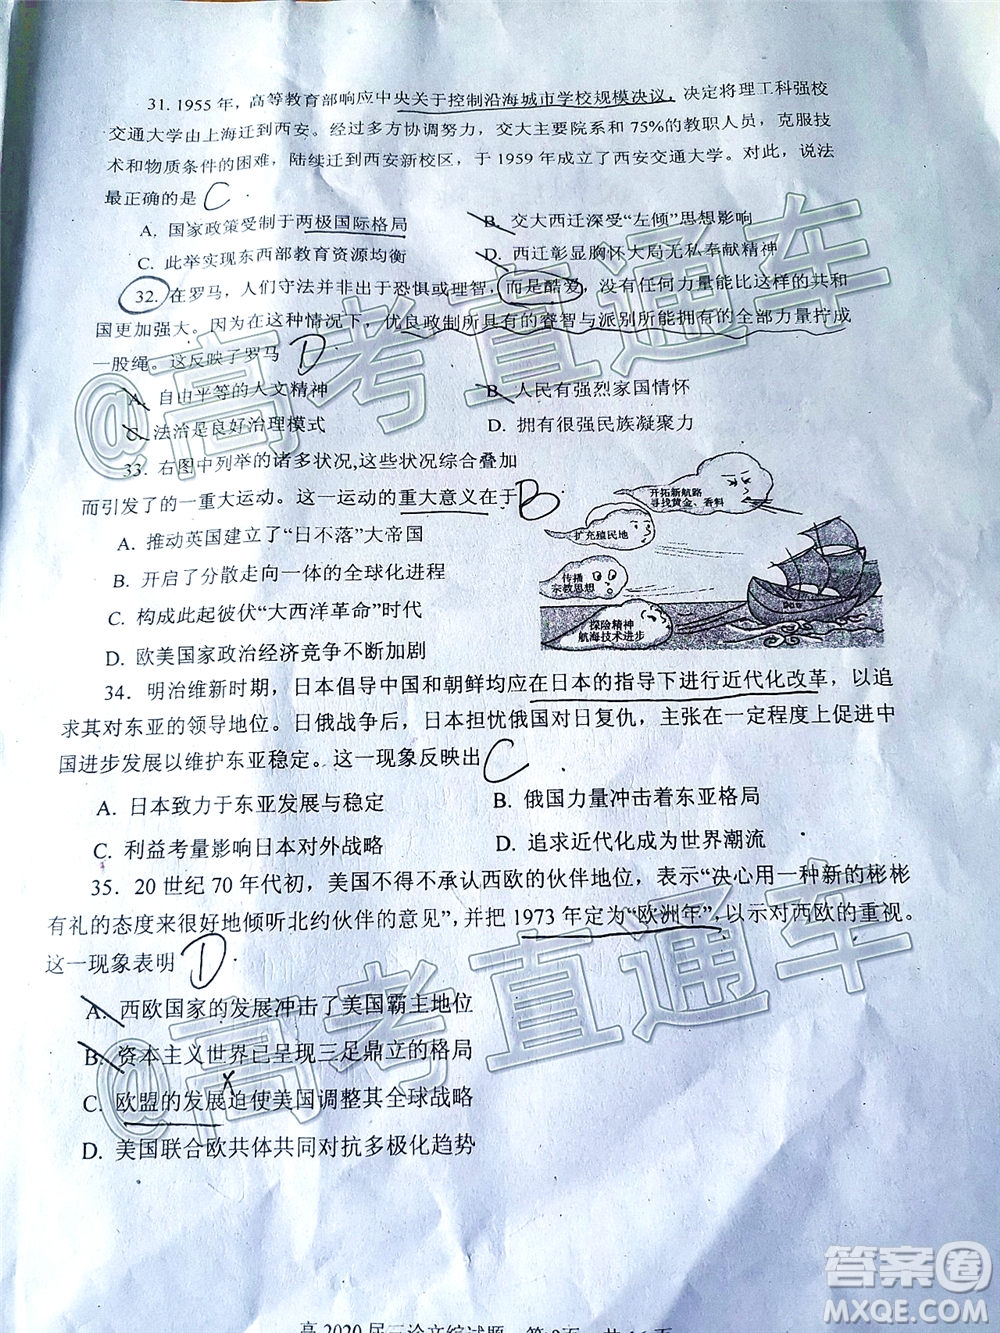 31. 1955 年，高等教育部响应中央关于控制沿海城市学校规模决议，决定将理工科强校
交通大学由上海迁到西安。经过多方协调努力，交大主要院系和 75%的教职人员，克服技
术和物质条件的困难，陆续迁到西安新校区，于 1959 年成立了西安交通大学。对此，说法
最正确的是 C
A. 国家政策受制于两极国际格局 B. 交大西迁深受“左倾”思想影响
C. 此举实现东西部教育资源均衡 D. 西迁彰显胸怀大局无私奉献精神
32. 在罗马，人们守法并非出于恐惧或理智，而是酷爱，没有任何力量能比这样的共和
国更加强大。因为在这种情况下，优良政制所具有的睿智与派别所能拥有的全部力量拧成
一股绳。这反映了罗马 D
A. 自由平等的人文精神 B. 人民有强烈家国情怀
C. 法治是良好治理模式 D. 拥有很强民族凝聚力
33. 右图中列举的诸多状况,这些状况综合叠加
而引发了的一重大运动。这一运动的重大意义在于 B
A. 推动英国建立了“日不落”大帝国
B. 开启了分散走向一体的全球化进程
C. 构成此起彼伏“大西洋革命”时代
D. 欧美国家政治经济竞争不断加剧
开拓新航路
寻找黄金、香料
扩充殖民地
传播
宗教思想
探险精神
航海技术进步
34. 明治维新时期，日本倡导中国和朝鲜均应在日本的指导下进行近代化改革，以追
求其对东亚的领导地位。日俄战争后，日本担忧俄国对日复仇，主张在一定程度上促进中
国进步发展以维护东亚稳定。这一现象反映出 C
A. 日本致力于东亚发展与稳定 B. 俄国力量冲击着东亚格局
C. 利益考量影响日本对外战略 D. 追求近代化成为世界潮流
35. 20 世纪 70 年代初，美国不得不承认西欧的伙伴地位，表示“决心用一种新的彬彬
有礼的态度来很好地倾听北约伙伴的意见”，并把 1973 年定为“欧洲年”，以示对西欧的重视。
这一现象表明 D
A. 西欧国家的发展冲击了美国霸主地位
B. 资本主义世界已呈现三足鼎立的格局
C. 欧盟的发展迫使美国调整其全球战略
D. 美国联合欧共体共同对抗多极化趋势
@高考直通车
@高考直通车
答案圈
MXQE.COM
高 2020 届三诊文综试题